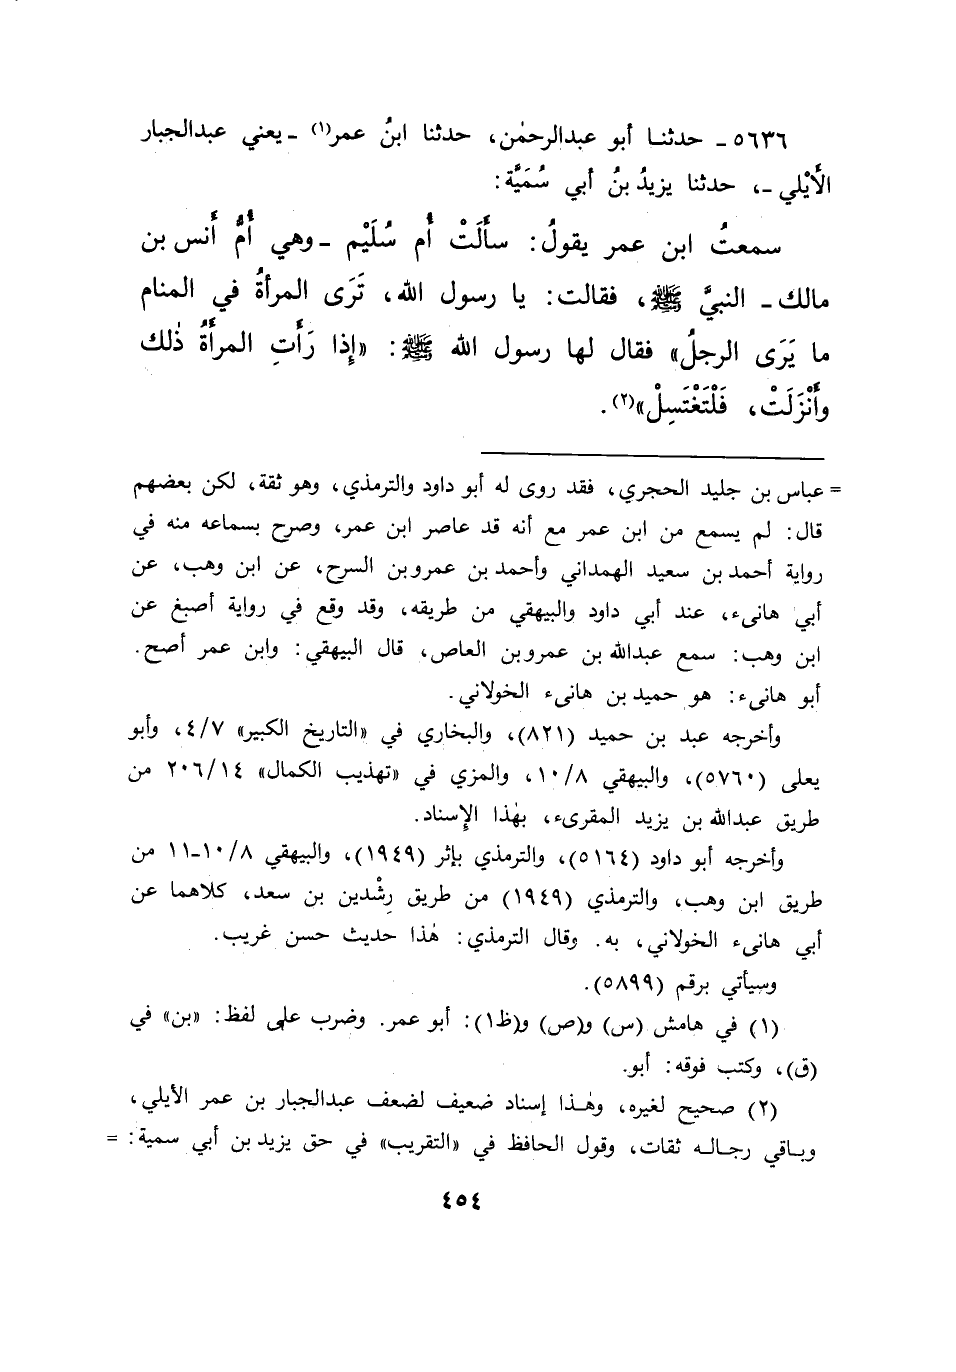 ٥٦٣٦ ـ حدثنا أبو عبدالرحمٰن، حدثنا ابنُ عمر(١) ـ يعني عبدالجبار
الأَيْلي ـ، حدثنا يزيدُ بنُ أبي سُمَيَّة:
سمعتُ ابن عمر يقولُ: سأَلَتْ أُم سُلَيْم ـ وهي أُمُّ أَنس بن
مالك ـ النبيَّ ﷺ، فقالت: يا رسول الله، تَرَى المرأةُ في المنام
ما يَرَى الرجلُ» فقال لها رسول الله ﷺ: «إِذا رَأَتِ المرأَةُ ذٰلك
وأَنْزَلَتْ، فَلْتَغْتَسِلْ»(٢).
= عباس بن جليد الحجري، فقد روى له أبو داود والترمذي، وهو ثقة، لكن بعضهم
قال: لم يسمع من ابن عمر مع أنه قد عاصر ابن عمر، وصرح بسماعه منه في
رواية أحمد بن سعيد الهمداني وأحمد بن عمرو بن السرح، عن ابن وهب، عن
أبي هانىء، عند أبي داود والبيهقي من طريقه، وقد وقع في رواية أصبغ عن
ابن وهب: سمع عبدالله بن عمرو بن العاص، قال البيهقي: وابن عمر أصح.
أبو هانىء: هو حميد بن هانىء الخولاني.
وأخرجه عبد بن حميد (٨٢١)، والبخاري في «التاريخ الكبير» ٤/٧، وأبو
يعلى (٥٧٦٠)، والبيهقي ١٠/٨، والمزي في «تهذيب الكمال» ٢٠٦/١٤ من
طريق عبدالله بن يزيد المقرىء، بهٰذا الإسناد.
وأخرجه أبو داود (٥١٦٤)، والترمذي بإثر (١٩٤٩)، والبيهقي ١٠/٨-١١ من
طريق ابن وهب، والترمذي (١٩٤٩) من طريق رِشْدين بن سعد، كلاهما عن
أبي هانىء الخولاني، به. وقال الترمذي: هٰذا حديث حسن غريب.
وسيأتي برقم (٥٨٩٩).
(١) في هامش (س) و(ص) و(ظ١): أبو عمر. وضرب على لفظ: «بن» في
(ق)، وكتب فوقه: أبو.
(٢) صحيح لغيره، وهٰذا إسناد ضعيف لضعف عبدالجبار بن عمر الأيلي،
وباقي رجاله ثقات، وقول الحافظ في «التقريب» في حق يزيد بن أبي سمية: =
٤٥٤